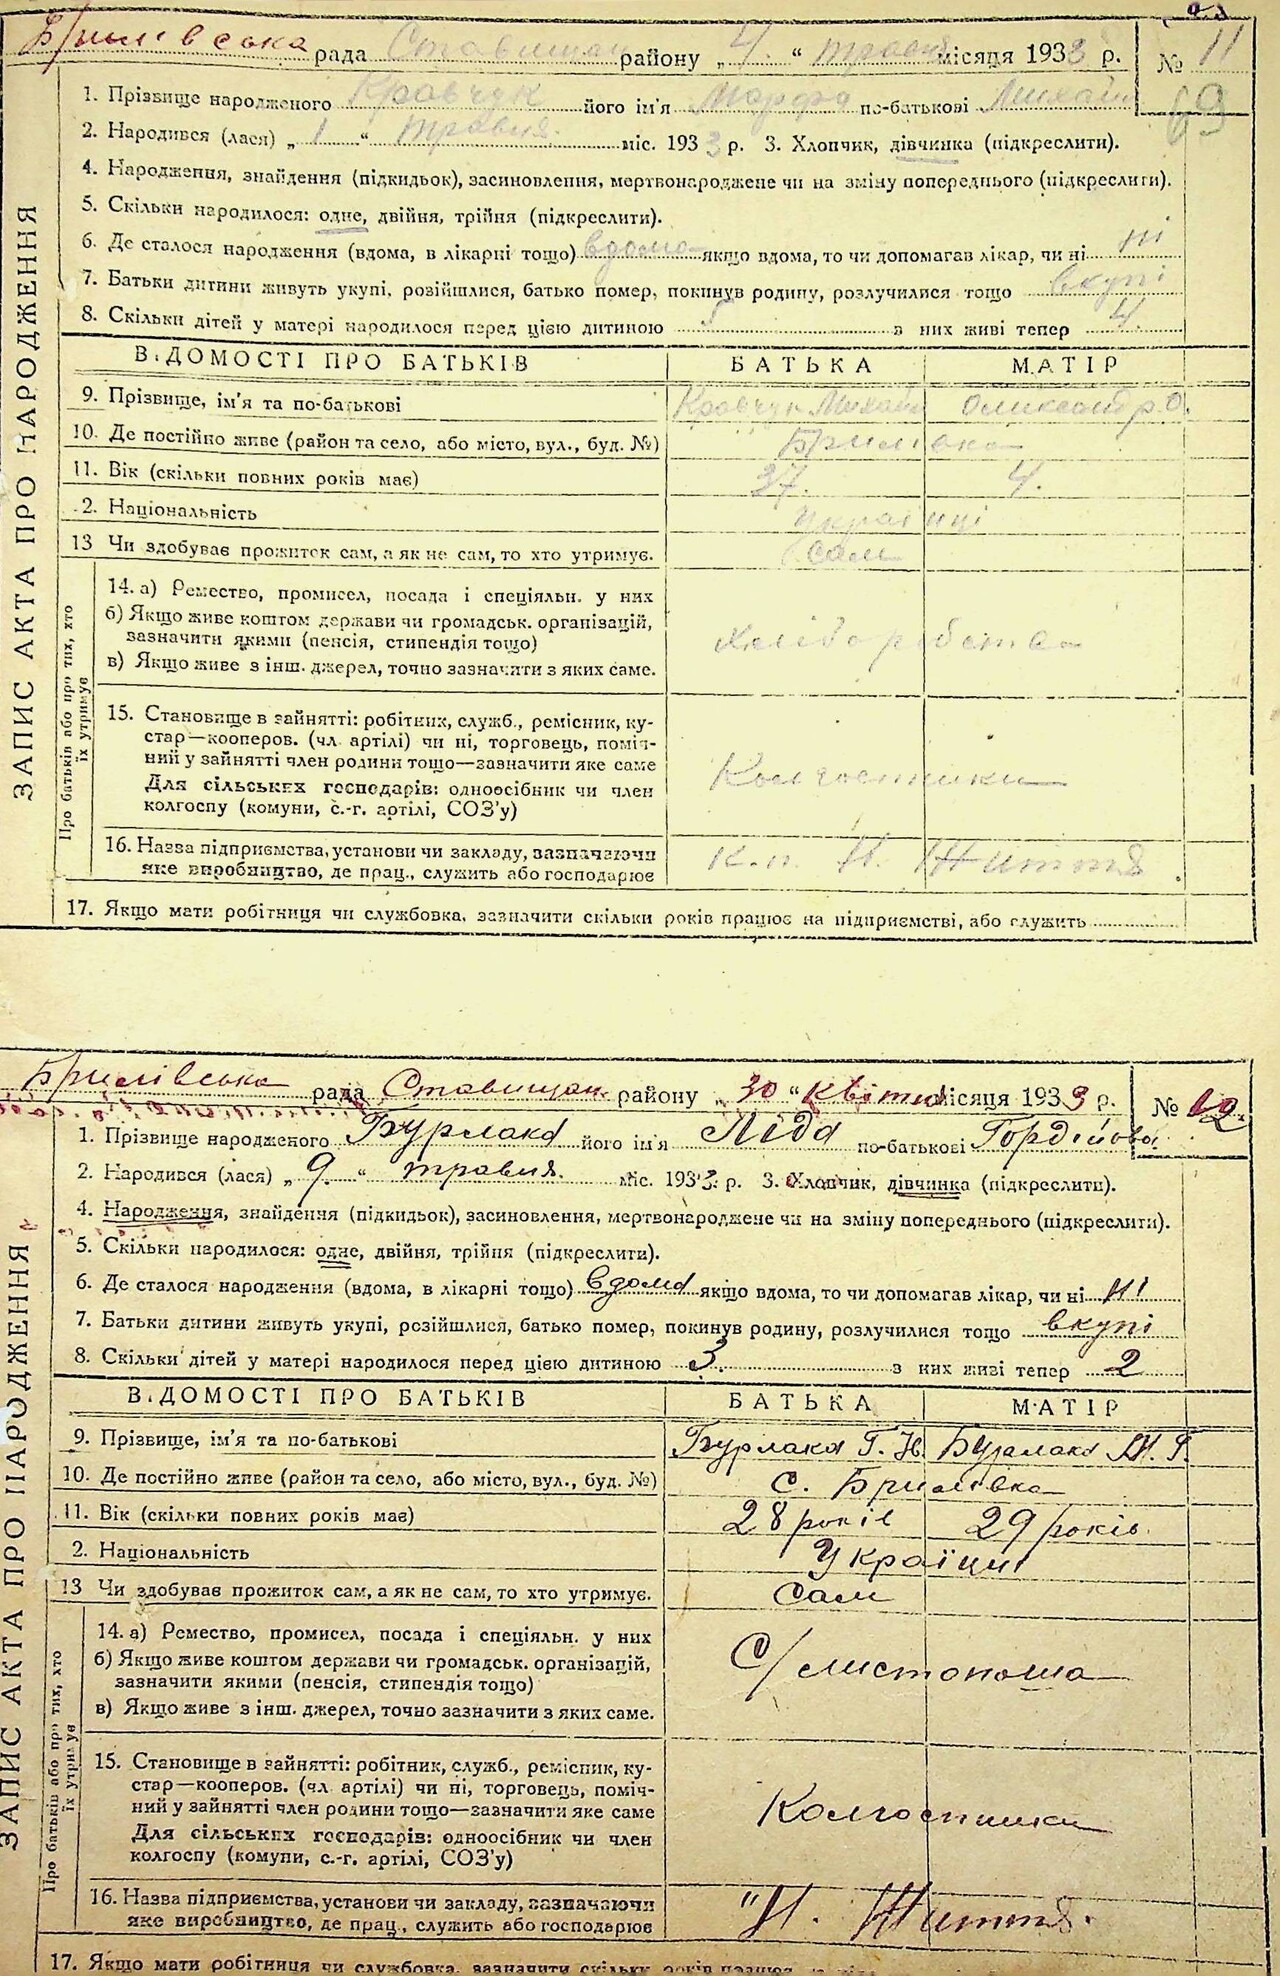 Брилівська рада Ставищан району „4.“ травня місяця 1933 р. № 11
69
1. Прізвище народженого Кравчук його ім'я Марфа по-батькові Михайл
2. Народився (лася) „1“ травня. міс. 1933 р. 3. Хлопчик, дівчинка (підкреслити).
4. Народження, знайдення (підкидьок), засиновлення, мертвонароджене чи на зміну попереднього (підкреслити).
5. Скільки народилося: одне, двійня, трійня (підкреслити).
6. Де сталося народження (вдома, в лікарні тощо) вдома якщо вдома, то чи допомагав лікар, чи ні ні
7. Батьки дитини живуть укупі, розійшлися, батько помер, покинув родину, розлучилися тощо вкупі
8. Скільки дітей у матері народилося перед цією дитиною 5 з них живі тепер 4.
ВІДОМОСТІ ПРО БАТЬКІВ БАТЬКА МАТІР
9. Прізвище, ім'я та по-батькові Кравчук Михайл Олександр. О.
10. Де постійно живе (район та село, або місто, вул., буд. №) Брилівка
11. Вік (скільки повних років має) 37. 4.
2. Національність Українці
13 Чи здобуває прожиток сам, а як не сам, то хто утримує. сам
14. а) Ремество, промисел, посада і спеціяльн. у них
б) Якщо живе коштом держави чи громадськ. організацій,
зазначити якими (пенсія, стипендія тощо)
в) Якщо живе з інш. джерел, точно зазначити з яких саме.
Хліборобство
15. Становище в зайнятті: робітник, служб., ремісник, ку-
стар—кооперов. (чл. артілі) чи ні, торговець, поміч-
ний у зайнятті член родини тощо—зазначити яке саме
Для сільських господарів: одноосібник чи член
колгоспу (комуни, с.-г. артілі, СОЗ'у)
Колгоспники
16. Назва підприємства, установи чи закладу, зазначаючи
яке виробництво, де прац., служить або господарює
к.п. Н. Життя
17. Якщо мати робітниця чи службовка, зазначити скільки років працює на підприємстві, або служить
ЗАПИС АКТА ПРО НАРОДЖЕННЯ
Про батьків або про тих, хто
їх утримує
Брилівська рада Ставищан. району „30“ квітня місяця 1933 р. № 12.
1. Прізвище народженого Бурлака його ім'я Ліда по-батькові Гордійова
2. Народився (лася) „9.“ травня. міс. 1933. р. 3. Хлопчик, дівчинка (підкреслити).
4. Народження, знайдення (підкидьок), засиновлення, мертвонароджене чи на зміну попереднього (підкреслити).
5. Скільки народилося: одне, двійня, трійня (підкреслити).
6. Де сталося народження (вдома, в лікарні тощо) вдома якщо вдома, то чи допомагав лікар, чи ні ні
7. Батьки дитини живуть укупі, розійшлися, батько помер, покинув родину, розлучилися тощо вкупі
8. Скільки дітей у матері народилося перед цією дитиною 3. з них живі тепер 2
ВІДОМОСТІ ПРО БАТЬКІВ БАТЬКА МАТІР
9. Прізвище, ім'я та по-батькові Бурлака Г. Н. Бурлака М. Г.
10. Де постійно живе (район та село, або місто, вул., буд. №) с. Брилівка
11. Вік (скільки повних років має) 28 років 29 років.
2. Національність Українці
13 Чи здобуває прожиток сам, а як не сам, то хто утримує. сам
14. а) Ремество, промисел, посада і спеціяльн. у них
б) Якщо живе коштом держави чи громадськ. організацій,
зазначити якими (пенсія, стипендія тощо)
в) Якщо живе з інш. джерел, точно зазначити з яких саме.
С/листоноша
15. Становище в зайнятті: робітник, служб., ремісник, ку-
стар—кооперов. (чл. артілі) чи ні, торговець, поміч-
ний у зайнятті член родини тощо—зазначити яке саме
Для сільських господарів: одноосібник чи член
колгоспу (комуни, с.-г. артілі, СОЗ'у)
Колгоспники
16. Назва підприємства, установи чи закладу, зазначаючи
яке виробництво, де прац., служить або господарює
"Н. Життя.
17. Якщо мати робітниця чи службовка, зазначити скільки років працює
ЗАПИС АКТА ПРО НАРОДЖЕННЯ
Про батьків або про тих, хто
їх утримує